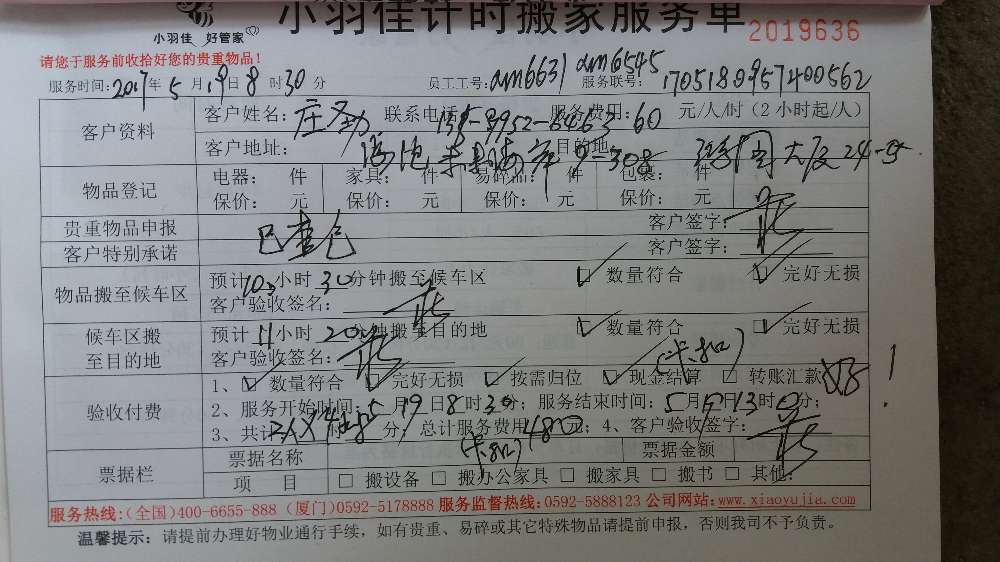 小羽佳计时搬家服务单
小羽佳 好管家
2019636
请您于服务前收拾好您的贵重物品！
服务时间：2017年5月19日8时30分 员工工号：am6631 am6545 服务联号：1705180957400562
客户资料 客户姓名：庄劲 联系电话 服务费用：60 元/人/时（2小时起/人）
客户地址： 9-308 目的地
物品登记 电器： 件 家具： 件 易碎品： 件 包装： 件
保价： 元 保价： 元 保价： 元 保价： 元
贵重物品申报 客户签字：
客户特别承诺 客户签字：
物品搬至候车区 预计10小时30分钟搬至候车区 ☑ 数量符合 ☑ 完好无损
客户验收签名：
候车区搬至目的地 预计11小时20分钟搬至目的地 ☑ 数量符合 ☑ 完好无损
客户验收签名：
验收付费 1、☑ 数量符合 ☑ 完好无损 ☑ 按需归位 ☑ 现金结算 □ 转账汇款
2、服务开始时间：5月19日8时30分；服务结束时间：5月 日13时0分；
3、共计 时 分，总计服务费用480元；4、客户验收签字：
票据栏 票据名称 票据金额
项 目 □ 搬设备 □ 搬办公家具 □ 搬家具 □ 搬书 □ 其他：
服务热线：（全国）400-6655-888（厦门）0592-5178888 服务监督热线：0592-5888123 公司网站：www.xiaoyujia.com
温馨提示：请提前办理好物业通行手续，如有贵重、易碎或其它特殊物品请提前申报，否则我司不予负责。